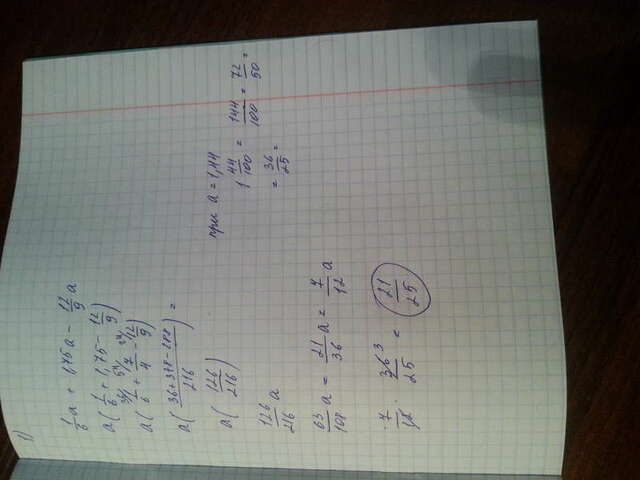 1)
1/6 a + 1,75a − 12/9 a
a(1/6 + 1,75 − 12/9)
a(36/ 1/6 + 54/ 7/4 − 24/ 12/9)
a((36+378−288)/216) =
a(126/216)
126/216 a
63/108 a = 21/36 a = 7/12 a
7/12 · 36 3/25 = 21/25
при a = 1,44
1 44/100 = 144/100 = 72/50 =
= 36/25 =